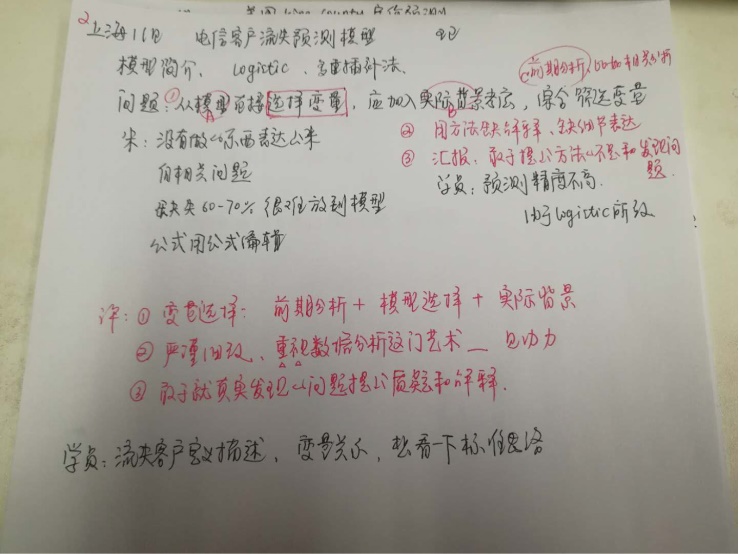 2
上海11日 电信客户流失预测模型
模型简介、logistic、多重插补法.
前期分析, 60-80相关分析
问题:①从模型直接选择变量,应加入实际背景考虑,综合筛选变量
A B
② 用方法缺解释、缺细节表达
米:没有做的东西表达出来
③ 汇报、敢于提出方法的不足和发现问题.
自相关问题
学员:预测精度不高.
缺失类60-70% 很难放到模型
由于logistic所致
公式用公式编辑
评:① 变量选择: 前期分析 + 模型选择 + 实际背景
② 严谨细致、重视数据分析这门艺术 — 见功力
③ 敢于就真实发现的问题提出质疑和解释.
学员:流失客户定义描述、变量关系、想看一下标准思路